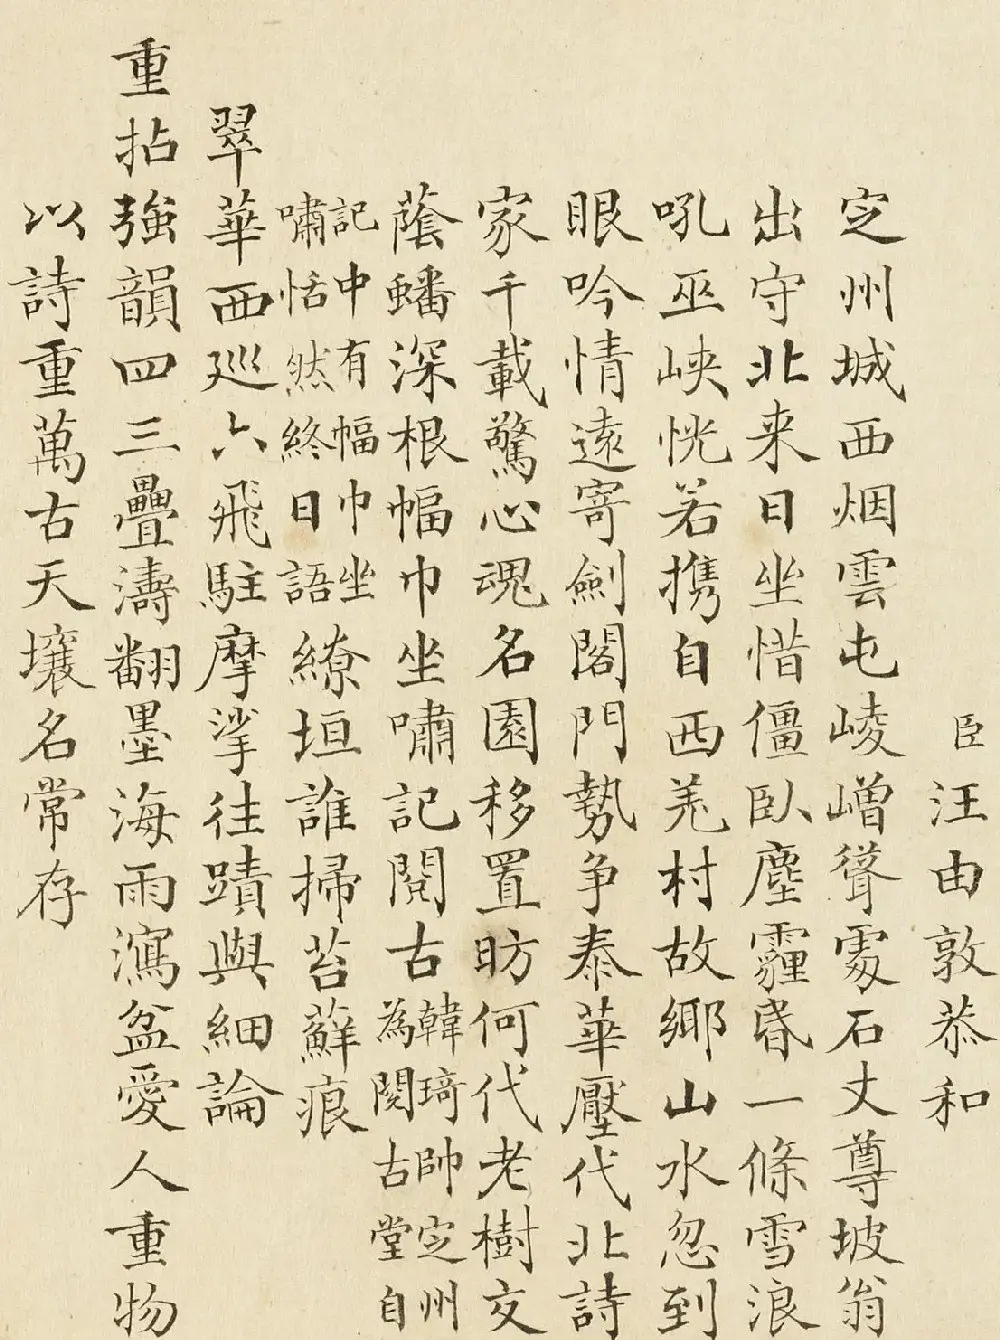 臣汪由敦恭和
定州城西烟雲屯崚嶒聳處石丈尊坡翁
出守北来日坐惜僵臥塵霾昏一條雪浪
吼巫峽恍若携自西羌村故鄉山水忽到
眼吟情遠寄劍閣門勢争泰華壓代北詩
家千載驚心魂名園移置昉何代老樹交
蔭蟠深根幅巾坐嘯記閱古韓琦帥定州為閱古堂自
記中有幅巾坐嘯恬然終日語繚垣誰掃苔蘚痕
翠華西巡六飛駐摩挲往蹟與細論
重拈強韻四三疊濤翻墨海雨瀉盆愛人重物
以詩重萬古天壤名常存